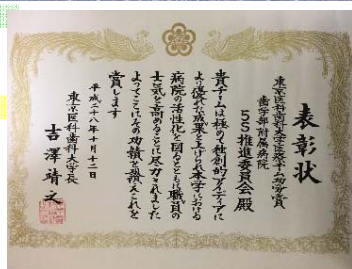 表彰状
東京医科歯科大学医療チーム功労賞
歯学部附属病院
5S推進委員会 殿
貴チームは極めて独創的なアイディアに
より優れた成果を上げられ本学における
病院の活性化を図るとともに職員の
士気を高めることに尽力されました
よってここにその功績を讃えこれを
賞します
平成二十八年十月十二日
東京医科歯科大学長
吉澤靖之